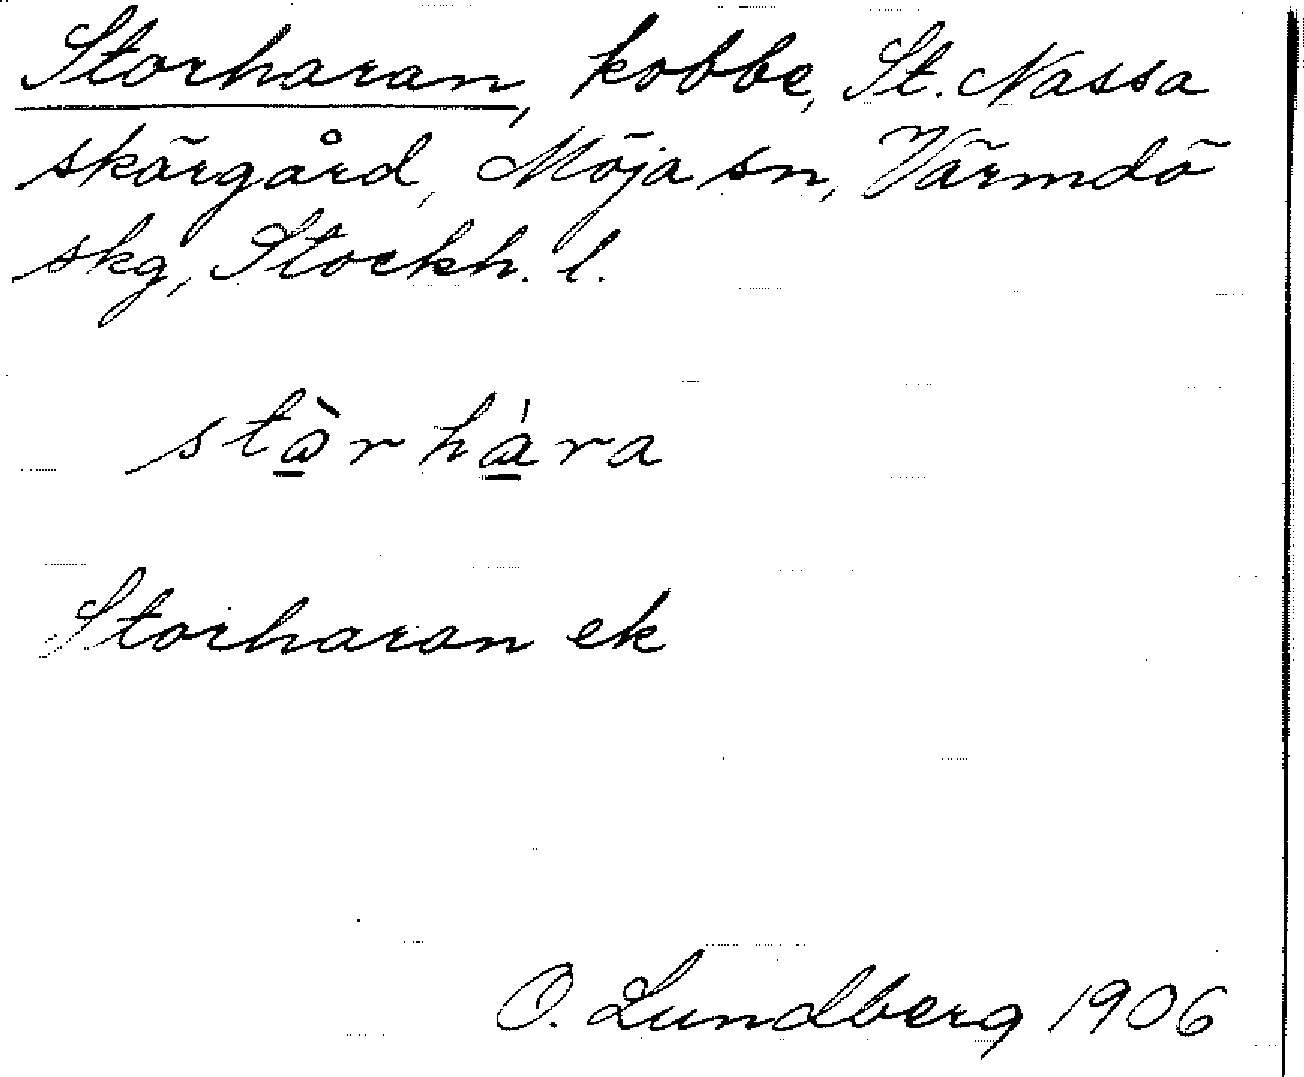 Storharan, kobbe, St. Nassa
skärgård, Möja sn, Värmdö
skg, Stockh. l.
stὼ̲rhά̲ra
Storharan ek
O. Lundberg 1906